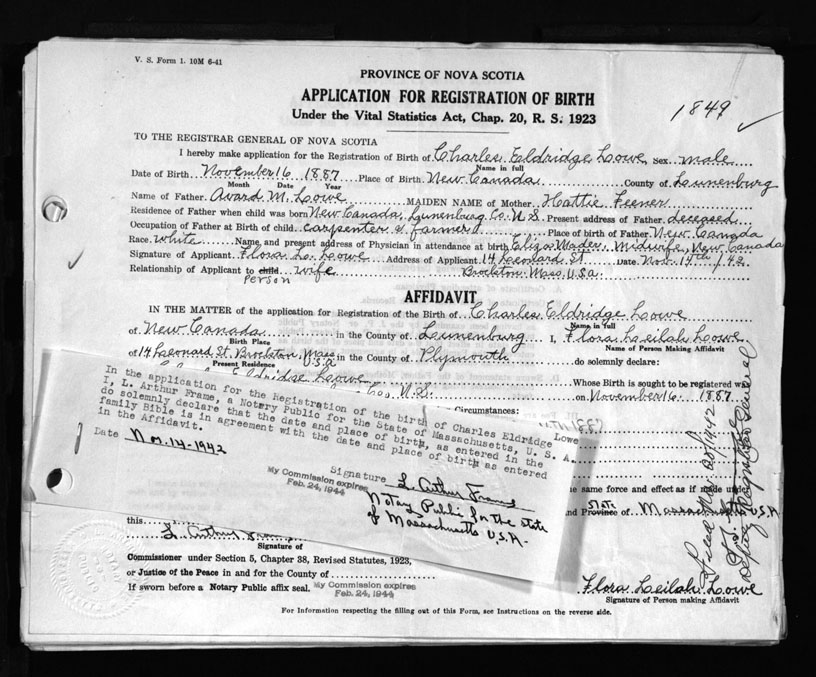 V. S. Form 1. 10M 6-41
PROVINCE OF NOVA SCOTIA
APPLICATION FOR REGISTRATION OF BIRTH
Under the Vital Statistics Act, Chap. 20, R. S. 1923
1849 ✓
TO THE REGISTRAR GENERAL OF NOVA SCOTIA
I hereby make application for the Registration of Birth of Charles Eldridge Lowe, Sex male
Name in full
Date of Birth November 16 1887 Place of Birth New Canada County of Lunenburg
Month Date Year
Name of Father Avard M. Lowe MAIDEN NAME of Mother Hattie Feener
Residence of Father when child was born New Canada, Lunenburg Co. N. S. Present address of Father deceased
Occupation of Father at Birth of child carpenter & farmer Place of birth of Father New Canada
Race white Name, and present address of Physician in attendance at birth Eliza Mader, Midwife, New Canada
Signature of Applicant Flora L. Lowe Address of Applicant 14 Leonard St Date Nov. 14th 1942
Relationship of Applicant to child wife Brockton Mass U.S.A.
person
AFFIDAVIT
IN THE MATTER of the application for Registration of the Birth of Charles Eldridge Lowe
Name in full
of New Canada in the County of Lunenburg I, Flora Leilah Lowe
Birth Place Name of Person Making Affidavit
of 14 Leonard St. Brockton, Mass U.S.A. in the County of Plymouth do solemnly declare:
Present Residence
Eldridge Lowe Whose Birth is sought to be registered was
Co. N. S. on November 16 1887
Circumstances:
In the application for the Registration of the birth of Charles Eldridge Lowe
I, L. Arthur Frame, a Notary Public for the State of Massachusetts, U. S. A.
do solemnly declare that the date and place of birth, as entered in the
family Bible is in agreement with the date and place of birth as entered
in the Affidavit.
Date Nov. 14-1942
Signature L. Arthur Frame
My Commission expires
Feb. 24, 1944
Notary Public for the state
of Massachusetts U.S.A.
the same force and effect as if made under
and Province of Massachusetts U.S.A.
State
this
L. Arthur Frame
Signature of
Commissioner under Section 5, Chapter 38, Revised Statutes, 1923,
or Justice of the Peace in and for the County of
If sworn before a Notary Public affix seal. My Commission expires
Feb. 24, 1944
Flora Leilah Lowe
Signature of Person making Affidavit
For Information respecting the filling out of this Form, see Instructions on the reverse side.